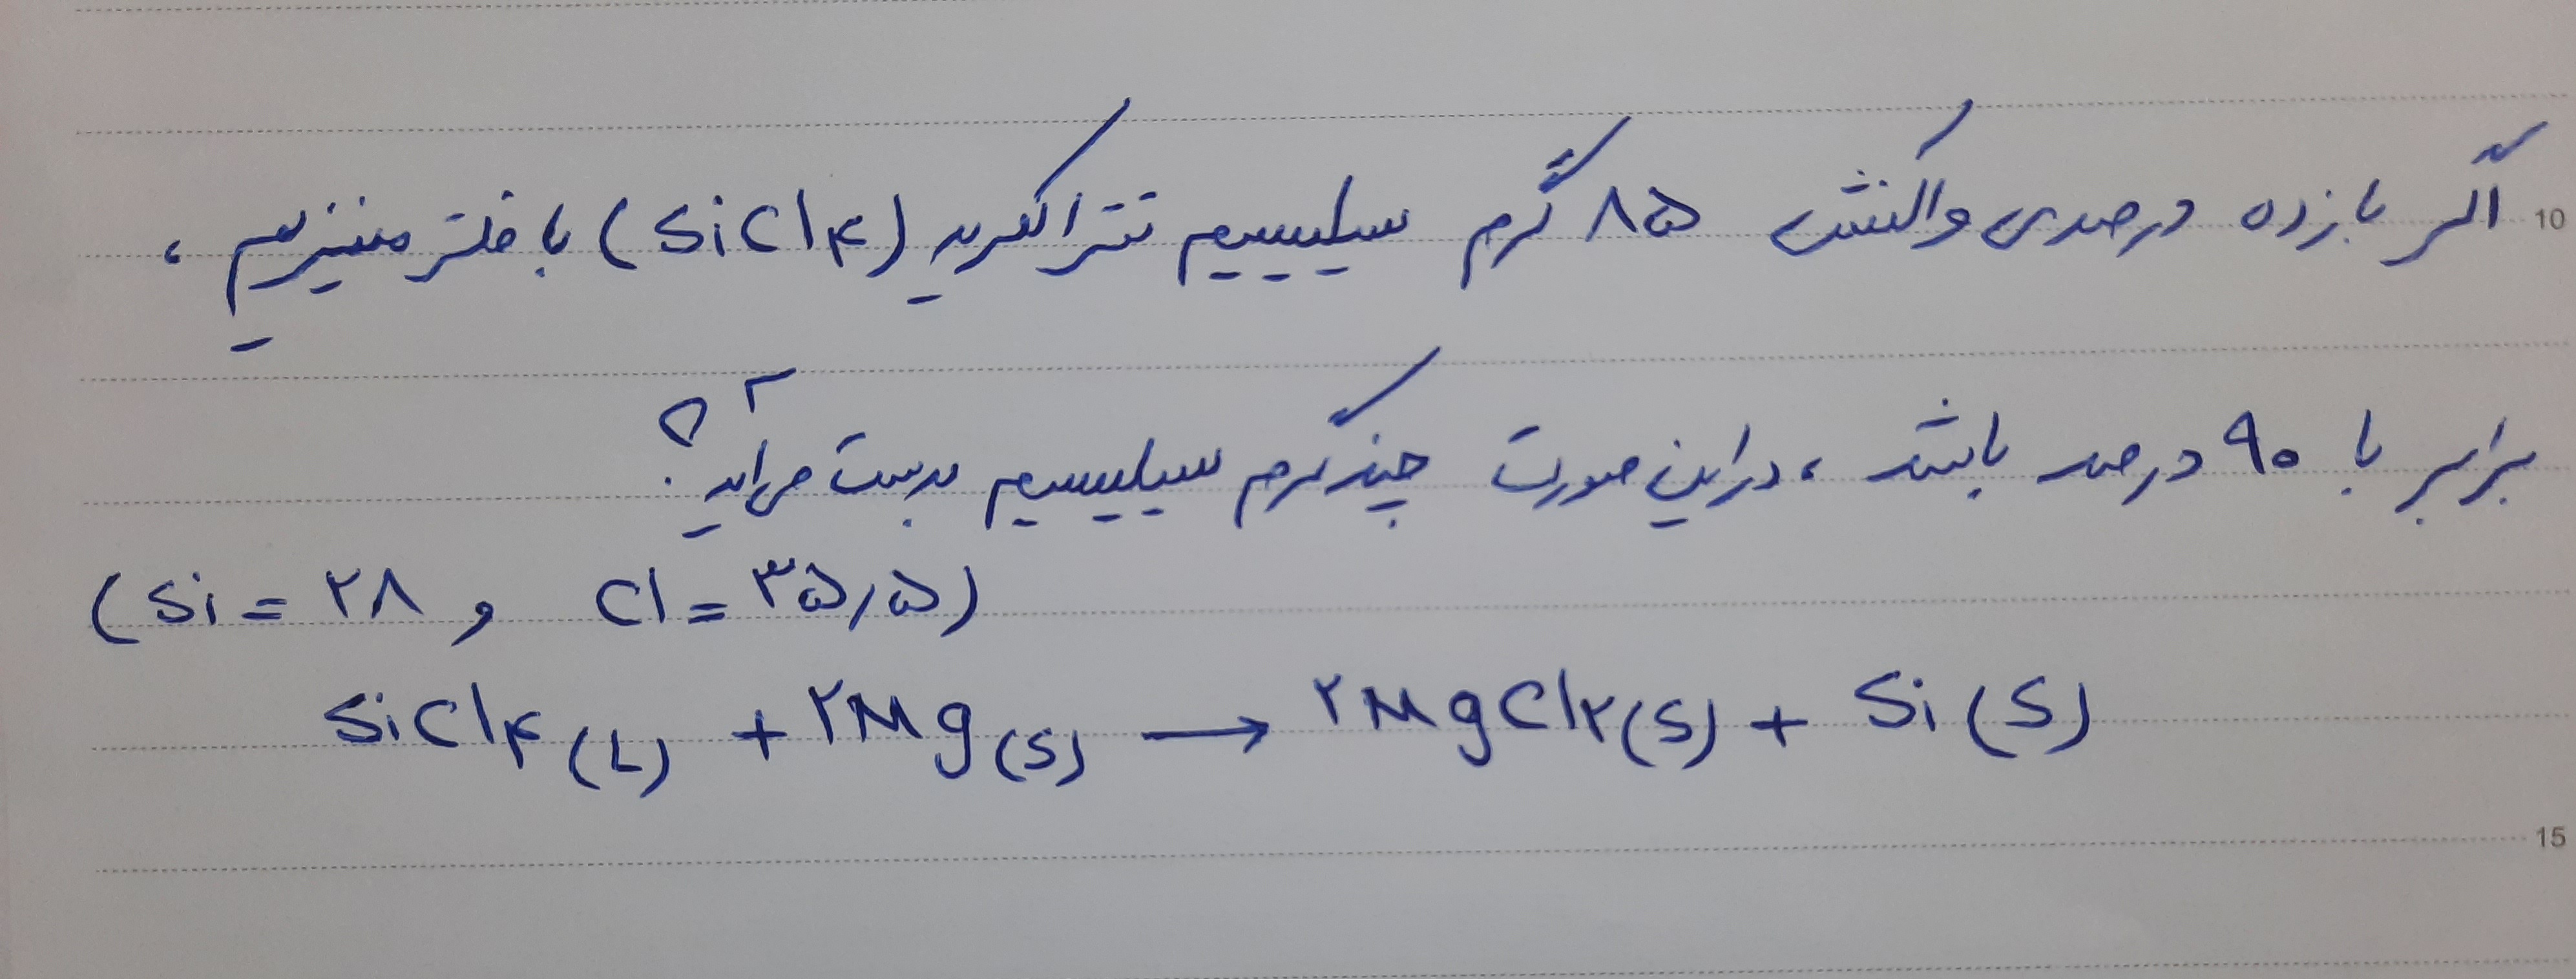 اگر بازده درصدی واکنش ۸۵ گرم سیلیسیم تتراکلرید (SiCl۴) با فلز منیزیم ،
10
برابر با ۹۰ درصد باشد ، در این صورت چند گرم سیلیسیم بدست می‌آید ؟
(Si = ۲۸ و Cl = ۳۵٫۵)
SiCl۴ (L) + ۲Mg (S) → ۲MgCl۲ (S) + Si (S)
15